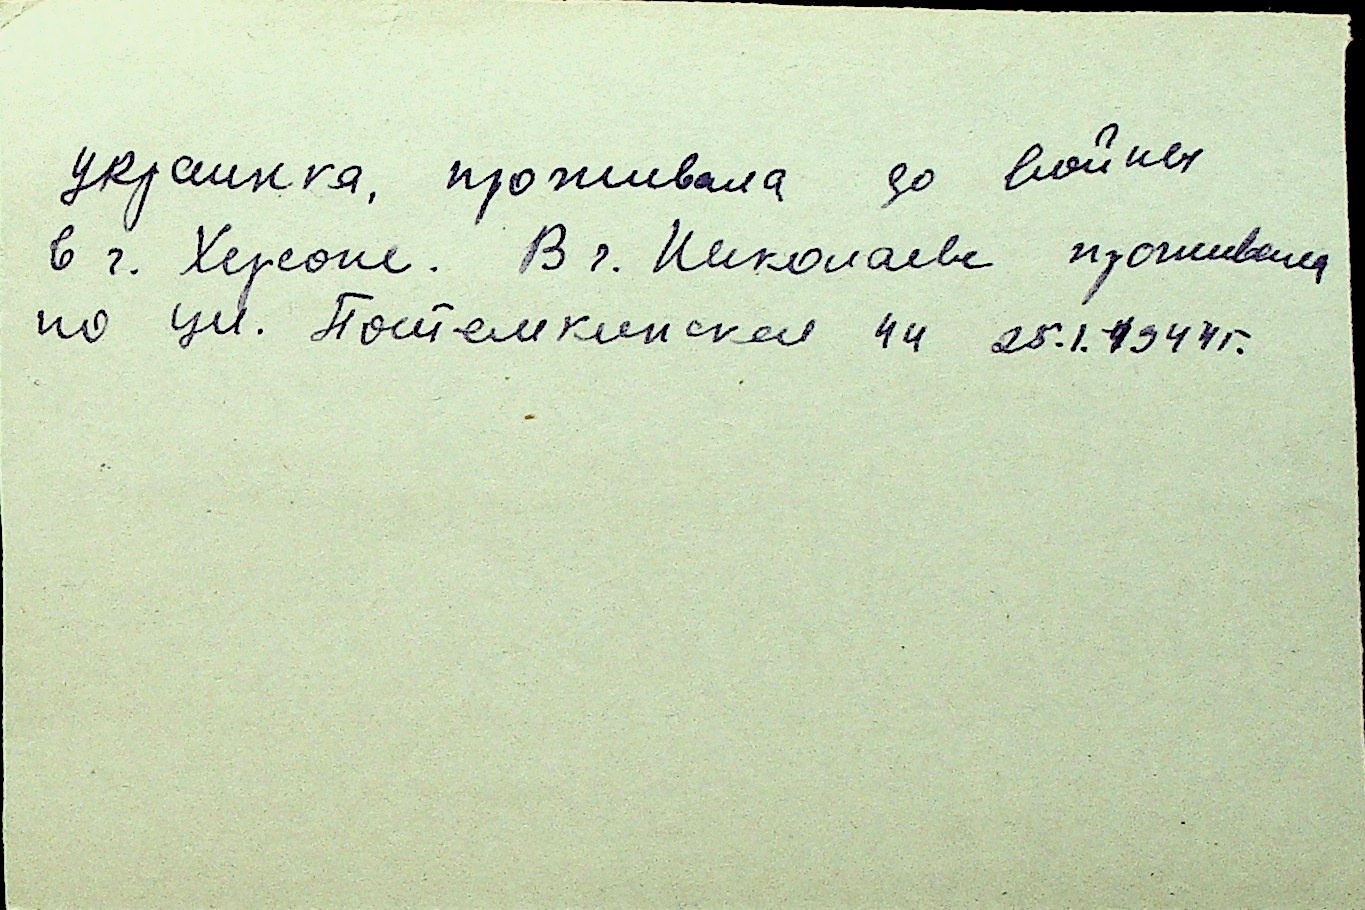 украинка, проживала до войны
в г. Херсоне. В г. Николаеве проживала
по ул. Потемкинская 44 25.1.1944г.